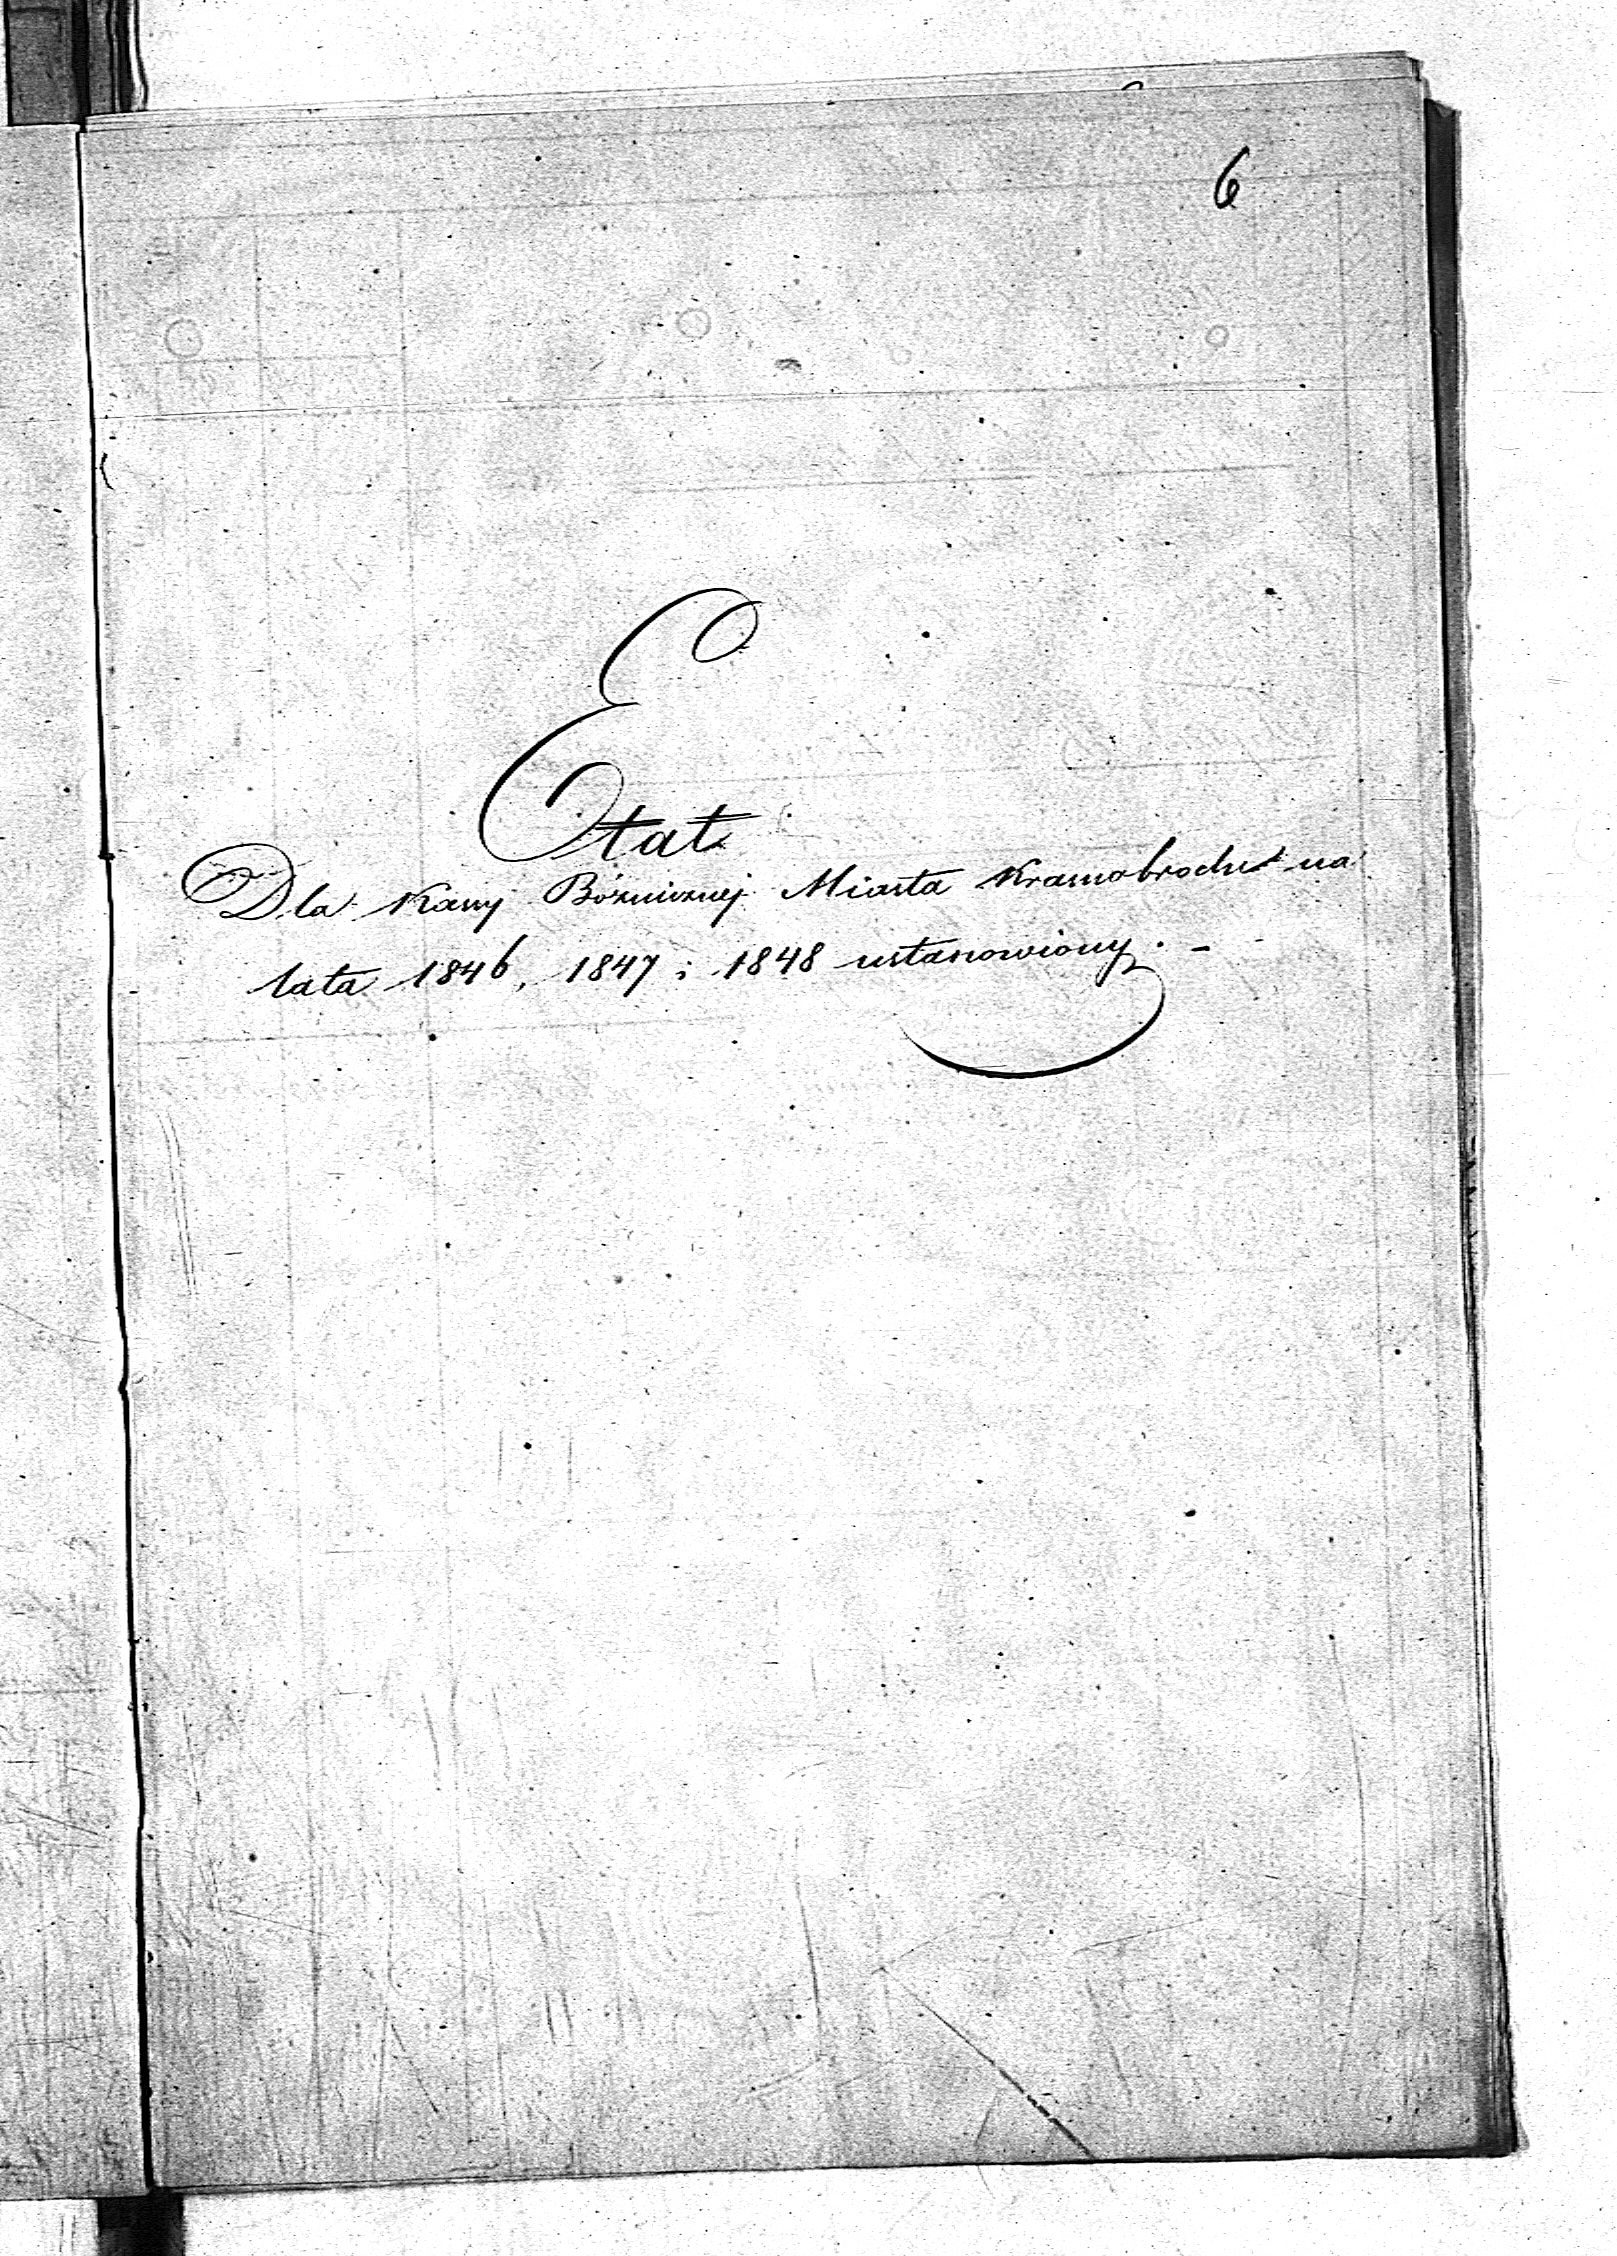 6
Etat
Dla Kassy Bóżnicznej Miasta Krasnobrodu na
lata 1846, 1847 i 1848 ustanowiony. -